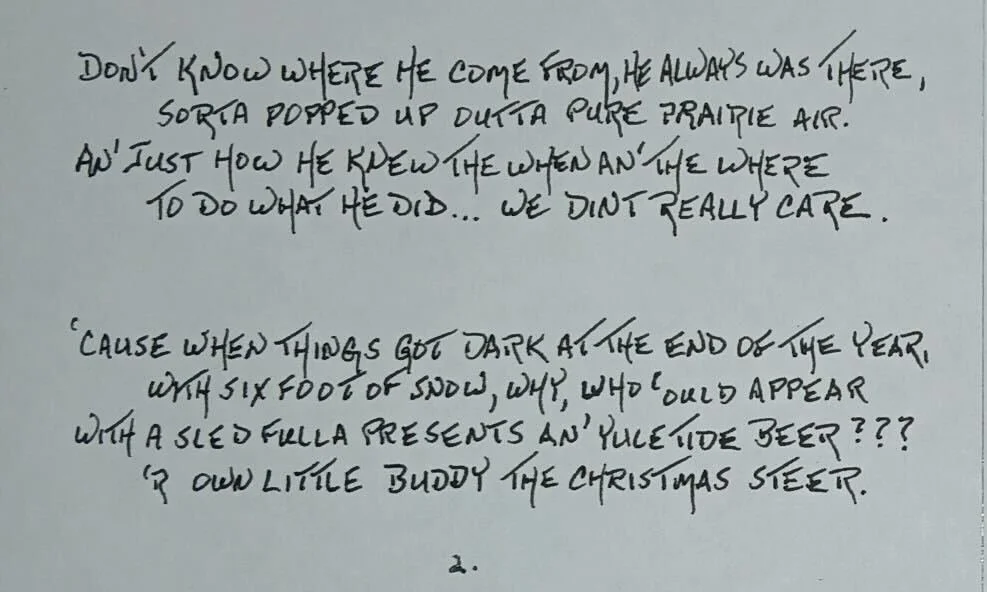 DON'T KNOW WHERE HE COME FROM, HE ALWAYS WAS THERE,
SORTA POPPED UP OUTTA PURE PRAIRIE AIR.
AN' JUST HOW HE KNEW THE WHEN AN' THE WHERE
TO DO WHAT HE DID... WE DINT REALLY CARE.
'CAUSE WHEN THINGS GOT DARK AT THE END OF THE YEAR,
WITH SIX FOOT OF SNOW, WHY, WHO 'OULD APPEAR
WITH A SLED FULLA PRESENTS AN' YULETIDE BEER???
'R OWN LITTLE BUDDY THE CHRISTMAS STEER.
2.